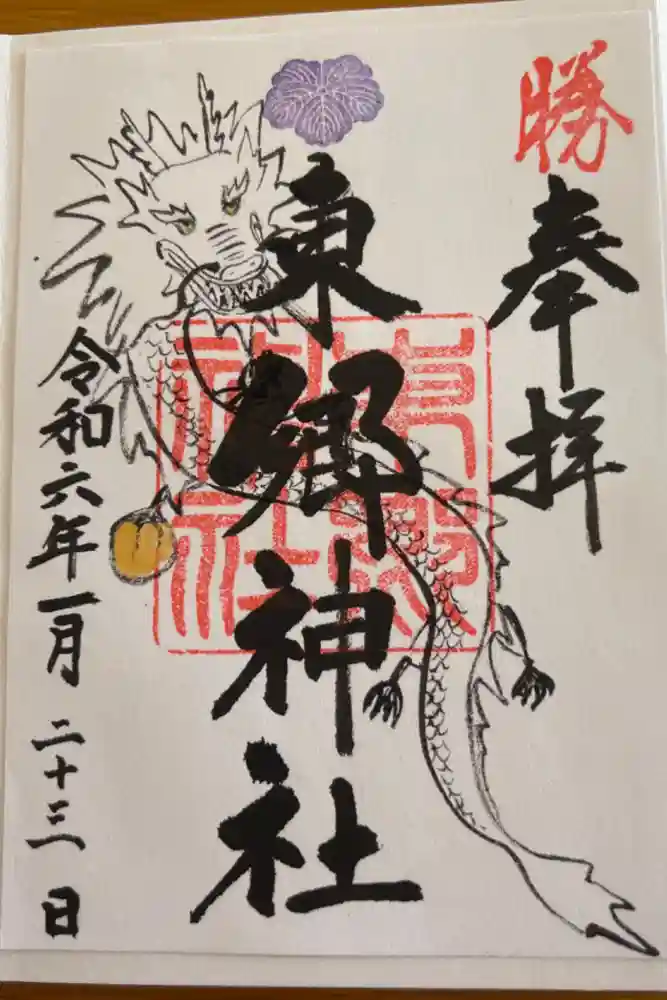 勝
奉拝
東郷神社
令和六年一月二十三日